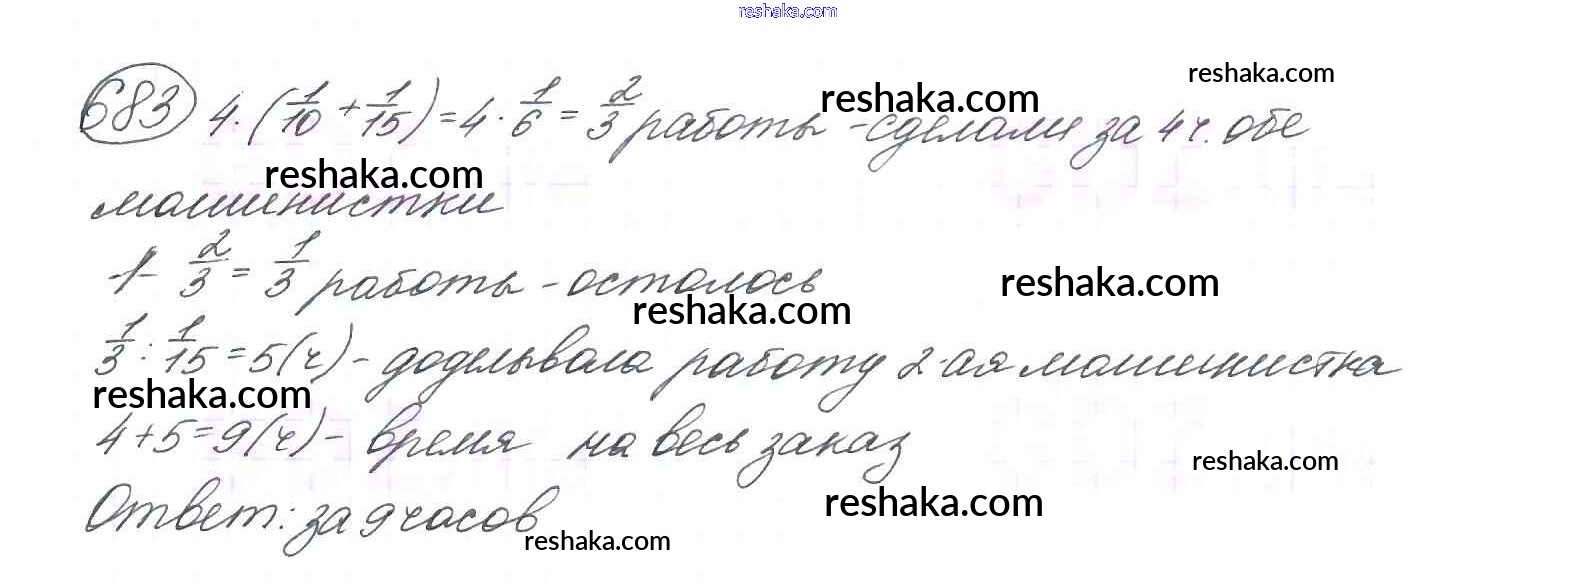 reshaka.com
reshaka.com
683 4·(1/10 + 1/15) = 4 · 1/6 = 2/3 работы - сделали за 4 ч. обе
reshaka.com
reshaka.com
машинистки
1 - 2/3 = 1/3 работы - осталось
reshaka.com
reshaka.com
1/3 : 1/15 = 5 (ч) - доделывала работу 2-ая машинистка
reshaka.com
4 + 5 = 9 (ч) - время на весь заказ
reshaka.com
reshaka.com
Ответ: за 9 часов
reshaka.com